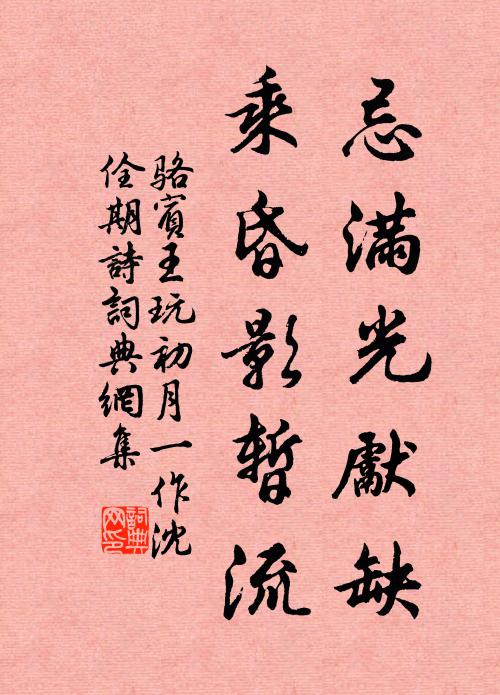 忌滿光獻缺
乘昏影暫流
駱賓王玩初月一作沈
佺期詩詞典網集
詞典
网印